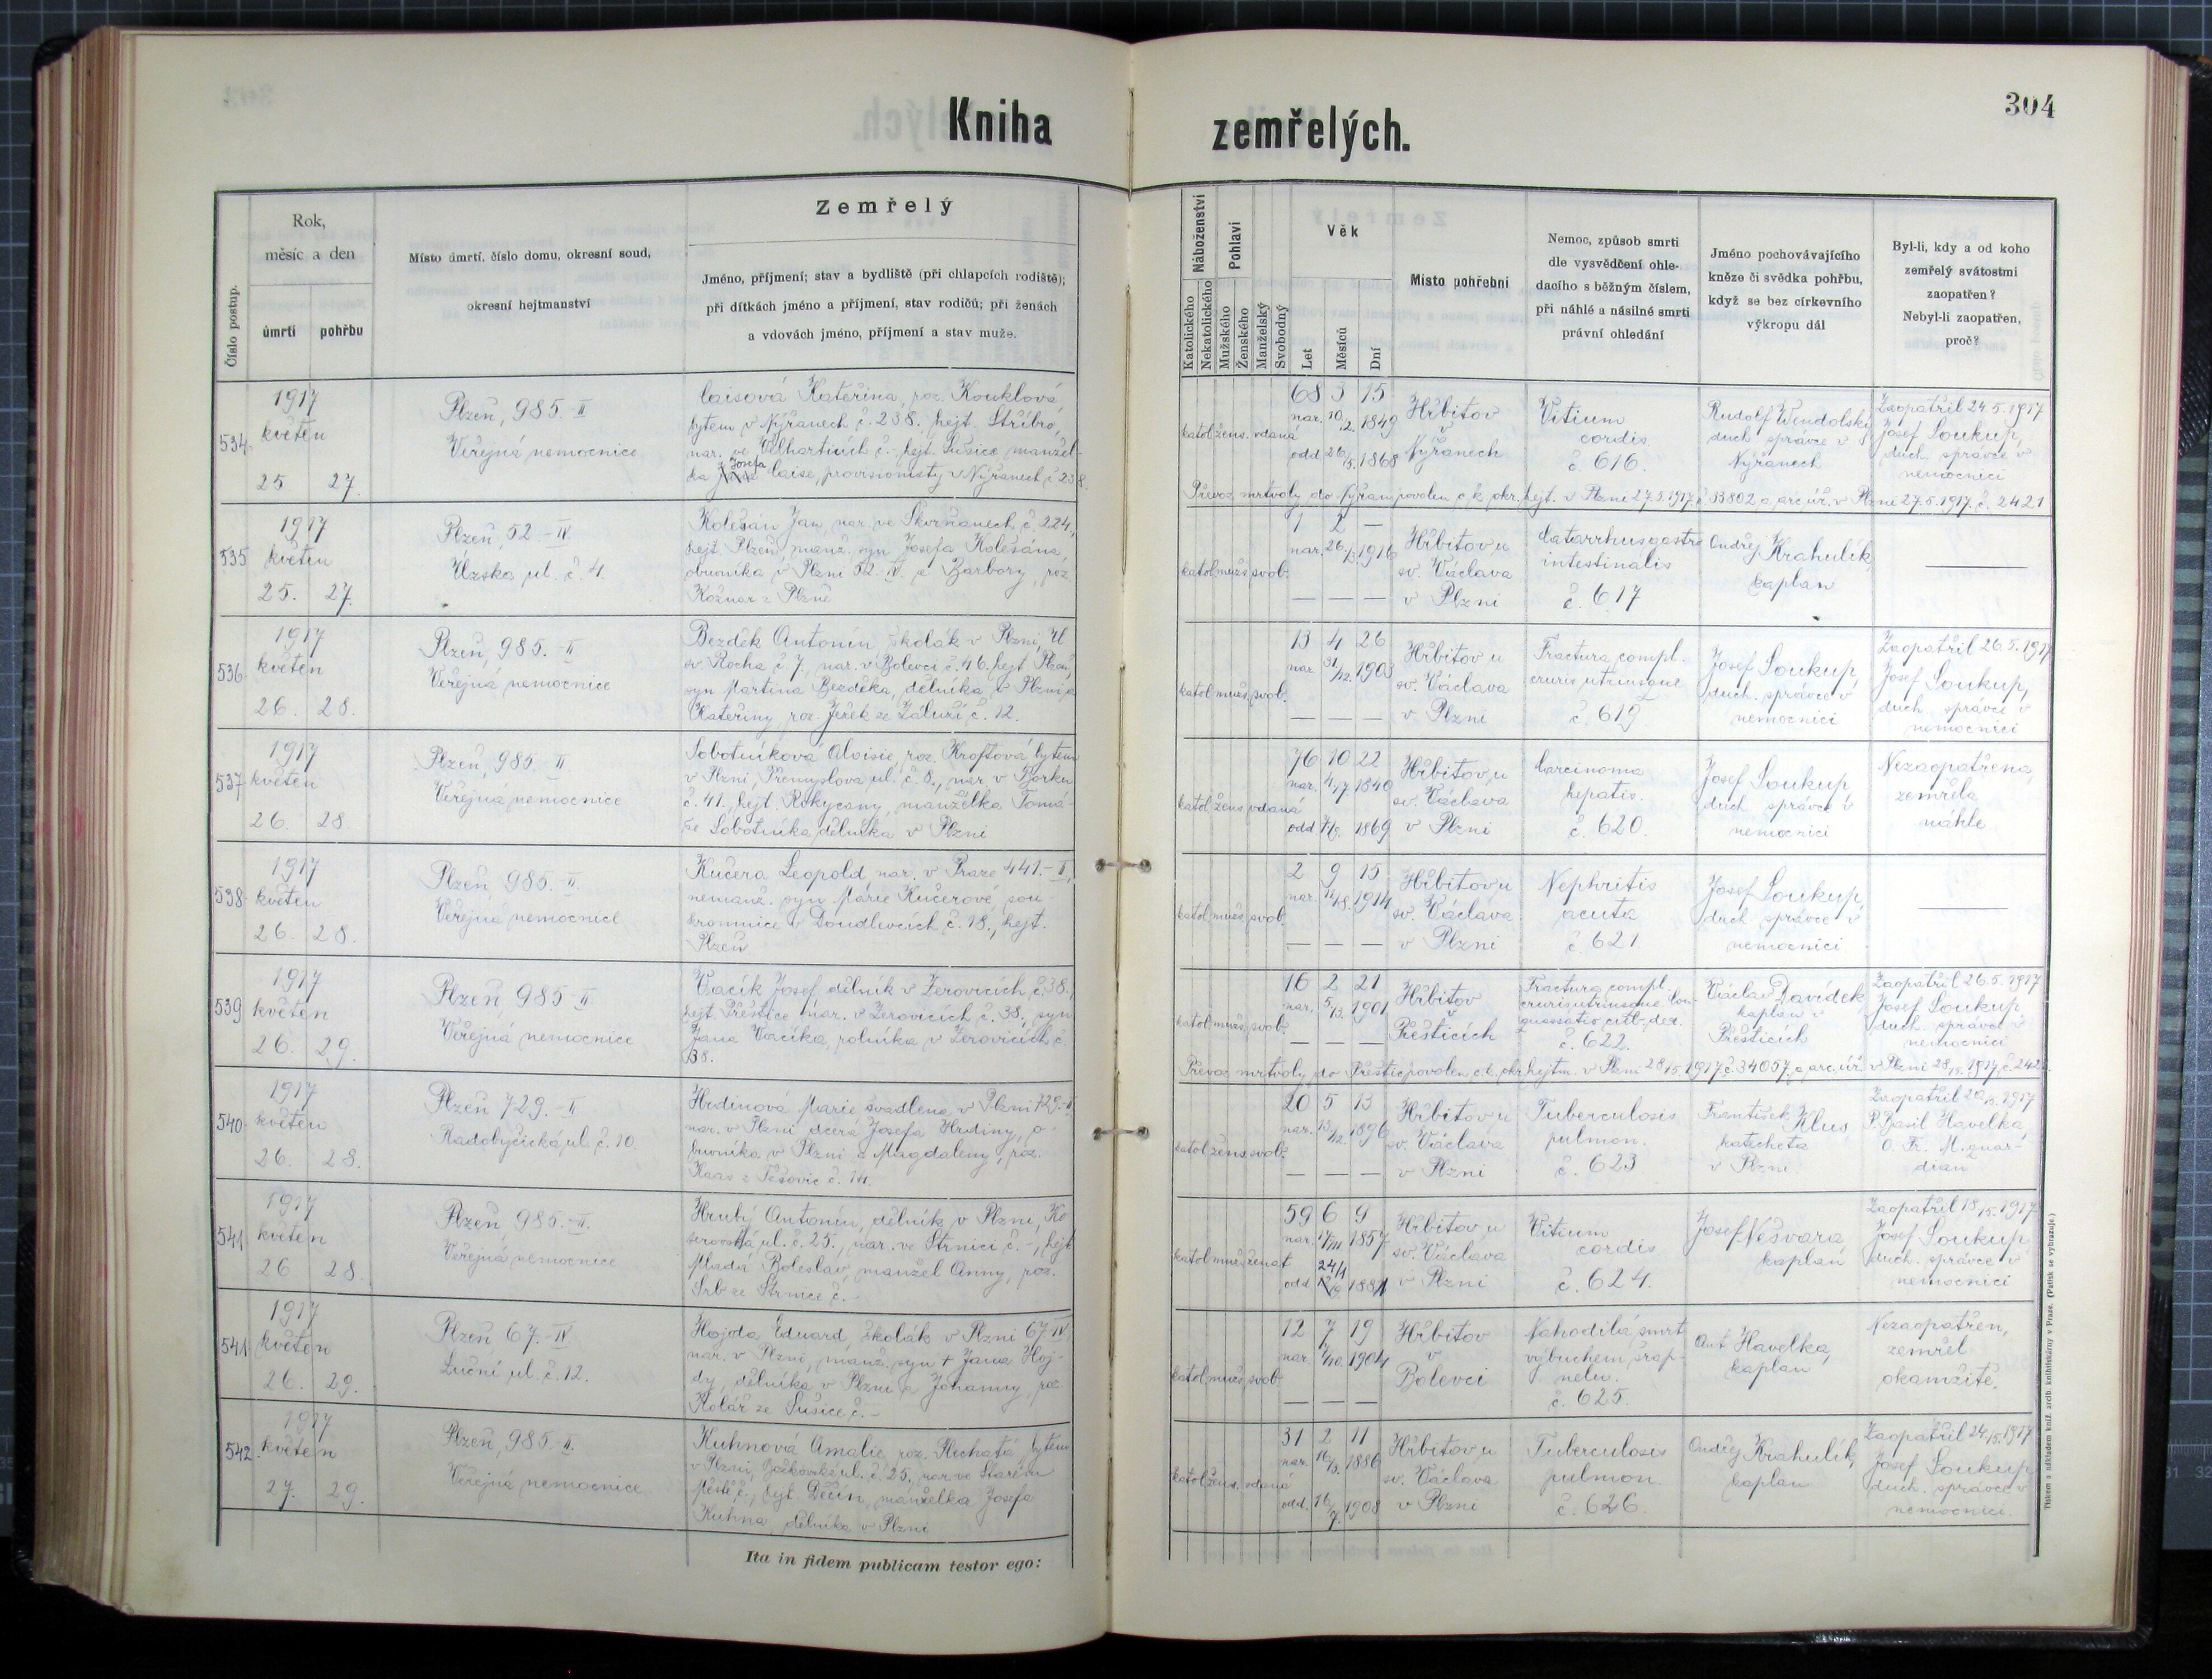 304
Kniha zemřelých.
Číslo postup.
Rok,
měsíc a den
úmrtí pohřbu
Místo úmrtí, číslo domu, okresní soud,
okresní hejtmanství
Zemřelý
Jméno, příjmení; stav a bydliště (při chlapcích rodiště);
při dítkách jméno a příjmení, stav rodičů; při ženách
a vdovách jméno, příjmení a stav muže.
Náboženství
Katolického
Nekatolického
Pohlaví
Mužského
Ženského
Manželský
Svobodný
Věk
Let
Měsíců
Dní
Místo pohřební
Nemoc, způsob smrti
dle vysvědčení ohle-
dacího s běžným číslem,
při náhlé a násilné smrti
právní ohledání
Jméno pochovávajícího
kněze či svědka pohřbu,
když se bez církevního
výkropu dál
Byl-li, kdy a od koho
zemřelý svátostmi
zaopatřen?
Nebyl-li zaopatřen,
proč?
534.
1917
květen
25 27.
Plzeň, 985.-II
Veřejná nemocnice
Caisová Kateřina, roz. Kouklová,
bytem v Nýřanech č. 238., hejt. Stříbro,
nar. ve Velharticích č.-, hejt. Sušice, manžel-
ka Josefa Caise, provisionisty v Nýřanech č. 238.
katol. žens. vdaná
68 3 15
nar. 10./2. 1849
odd. 26./5. 1868
Hřbitov
v
Nýřanech
Vitium
cordis.
č. 616.
Rudolf Wendolský
duch. správce v
Nýřanech
Zaopatřil 24.5.1917
Josef Soukup,
duch. správce v
nemocnici
Převoz mrtvoly do Nýřan povolen c. k. okr. hejt. v Plzni 27.5.1917 č. 33802 a arc. úř. v Plzni 27.5.1917. č. 2421
535
1917
květen
25. 27.
Plzeň, 52.-IV.
Úzská ul. č. 4.
Kolesán Jan, nar. ve Skvrňanech č. 224.,
hejt. Plzeň, manž. syn Josefa Kolesána,
obuvníka v Plzni 52.-IV. a Barbory, roz.
Kožnar z Plzně
katol. mužs. svob.
1 2 —
nar. 26./3. 1916
— — —
Hřbitov u
sv. Václava
v Plzni
Catarrhus gastro
intestinalis
č. 617
Ondřej Krahulík,
kaplan
—
536.
1917
květen
26. 28.
Plzeň, 985.-II
Veřejná nemocnice
Bezděk Antonín, školák v Plzni, Ul.
sv. Rocha č. 7., nar. v Bolevci č. 46. hejt. Plzeň,
syn Martina Bezděka, dělníka v Plzni a
Kateřiny, roz. Jeřek ze Záluží č. 12.
katol. mužs. svob.
13 4 26
nar. 31/12. 1903
— — —
Hřbitov u
sv. Václava
v Plzni
Fractura compl.
cruris utriusque
č. 619
Josef Soukup,
duch. správce v
nemocnici
Zaopatřil 26.5.1917
Josef Soukup,
duch. správce v
nemocnici
537
1917
květen
26. 28.
Plzeň, 985.-II
Veřejná nemocnice
Sobotníková Aloisie, roz. Kroftová bytem
v Plzni, Přemyslova ul. č. 8., nar. v Borku
č. 41., hejt. Rokycany, manželka Tomá-
še Sobotníka, dělníka v Plzni
katol. žens. vdaná
76 10 22
nar. 4./7. 1840
odd. 1869
Hřbitov u
sv. Václava
v Plzni
Carcinoma
hepatis.
č. 620.
Josef Soukup,
duch. správce v
nemocnici
Nezaopatřena,
zemřela
náhle
538.
1917
květen
26. 28.
Plzeň, 985.-II
Veřejná nemocnice
Kučera Leopold, nar. v Praze 441.-II.,
nemanž. syn Marie Kučerové, sou-
kromnice v Doudlevcích č. 18., hejt.
Plzeň
katol. mužs. svob.
2 9 15
nar. 1914
— — —
Hřbitov u
sv. Václava
v Plzni
Nephritis
acuta
č. 621.
Josef Soukup,
duch. správce v
nemocnici
—
539
1917
květen
26. 29.
Plzeň, 985-II
Veřejná nemocnice
Vacík Josef, dělník v Žerovicích, č. 38.,
hejt. Přeštice nar. v Žerovicích č. 38., syn
Jana Vacíka, rolníka v Žerovicích č.
38.
katol. mužs. svob.
16 2 21
nar. 5/3. 1901
— — —
Hřbitov
v
Přešticích
Fractura compl.
cruris utriusque. Con-
quassatio cub. dex.
č. 622.
Václav Davídek,
kaplan v
Přešticích
Zaopatřil 26.5.1917
Josef Soukup
duch. správce v
nemocnici
Převoz mrtvoly do Přeštic povolen c. k. okr. hejtm. v Plzni 28/5. 1917 č. 34057. a arc. úř. v Plzni 28/5. 1917, č. 242
540.
1917
květen
26. 28.
Plzeň 729.-II
Radobyčická ul. č. 10.
Hrdinová Marie švadlena v Plzni 729.-II
nar. v Plzni dcera Josefa Hrdiny, o-
buvníka v Plzni a Magdaleny, roz.
Haas z Těšovic č. 14.
katol. žens. svob.
20 5 13
nar. 13/12. 1896
— — —
Hřbitov u
sv. Václava
v Plzni
Tuberculosis
pulmon.
č. 623
František Klus,
katecheta
v Plzni.
Zaopatřil 20/5. 1917
P. Basil Havelka,
O. Fr. M. quar-
dian
541
1917
květen
26 28
Plzeň, 985.-II.
Veřejná nemocnice
Hrubý Antonín, dělník v Plzni, Ko
ul. č. 25., nar. ve Strnici č. -, hejt.
Mladá Boleslav, manžel Anny, roz.
Srb ze Strnice č.-
katol. mužs. ženat
59 6 9
nar. 17/11 1857
odd. 24/1 1881
Hřbitov u
sv. Václava
v Plzni
Vitium
cordis
č. 624.
Josef Nešvara
kaplan
Zaopatřil 18/5. 1917
Josef Soukup
duch. správce v
nemocnici
541.
1917
květen
26. 29.
Plzeň, 67.-IV
Luční ul. č. 12.
Hojda Eduard, školák v Plzni 67-IV.,
nar. v Plzni, manž. syn + Jana Hoj-
dy, dělníka v Plzni a Johanny, roz.
Kolář ze Sušice č.-
katol. mužs. svob.
12 7 19
nar. 7/10. 1904
— — —
Hřbitov
v
Bolevci
Nahodilá smrt
výbuchem šrap-
nelu.
č. 625.
Ant. Havelka,
kaplan
Nezaopatřen,
zemřel
okamžitě.
542.
1917
květen
27. 29.
Plzeň, 985.-II.
Veřejná nemocnice
Kuhnová Amalie, roz. Plechatá, bytem
v Plzni, Božkovské ul. č. 25., nar. ve Starém
Městě č., hejt. Děčín, manželka Josefa
Kuhna, dělníka v Plzni
katol. žens. vdaná
31 2 11
nar. 16/3. 1886
odd. 16/7. 1908
Hřbitov u
sv. Václava
v Plzni
Tuberculosis
pulmon.
č. 626.
Ondřej Krahulík,
kaplan
Zaopatřil 24/5. 1917
Josef Soukup
duch. správce v
nemocnici.
Ita in fidem publicam testor ego:
Tiskem a nákladem kníž. arcib. knihtiskárny v Praze. (Patisk se vyhrazuje.)